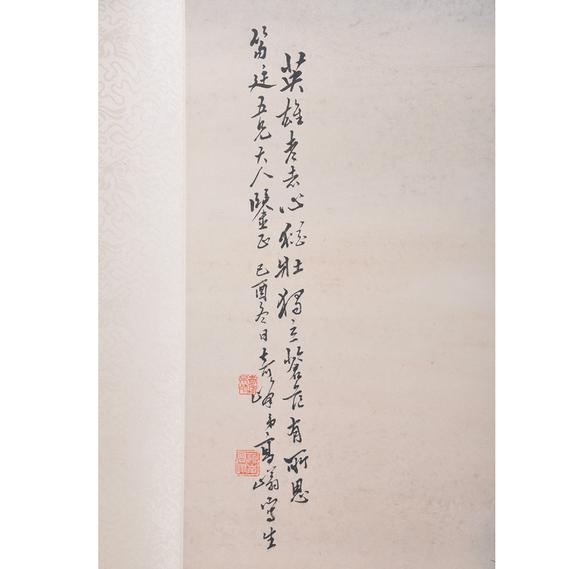 英雄老去心猶壯獨立蒼茫有所思
笏廷五兄大人鑒正己酉冬日奇峰弟高嵡寫生